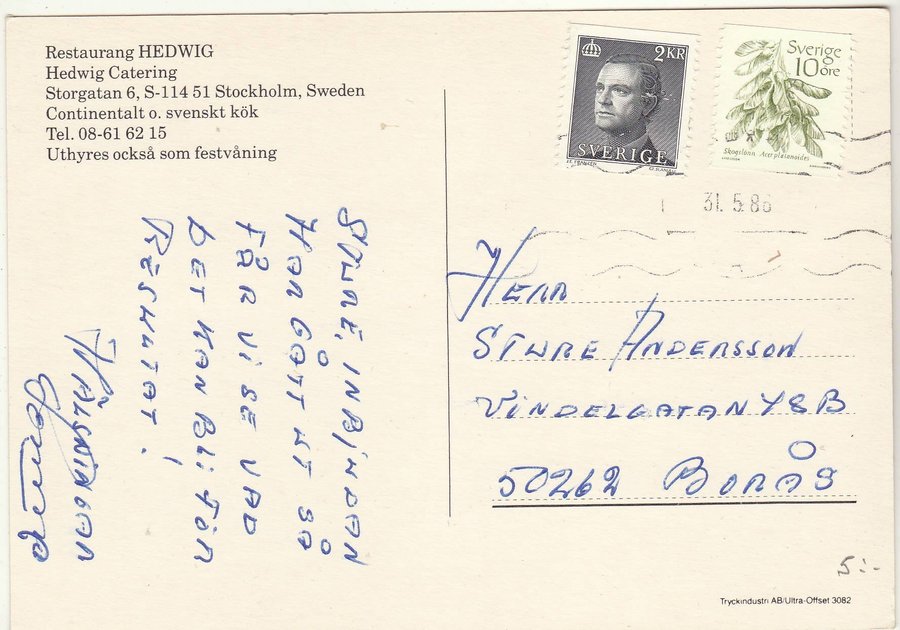 Restaurang HEDWIG
Hedwig Catering
Storgatan 6, S-114 51 Stockholm, Sweden
Continentalt o. svenskt kök
Tel. 08-61 62 15
Uthyres också som festvåning
STURE, INBJUDAN
HAR GÅTT UT SÅ
FÅR VI SE VAD
DET KAN BLI FÖR
RESULTAT.
HÄLSNINGAR
2KR
SVERIGE
Sverige
10öre
Skogslönn Acer platanoides
31.5.86
HERR
STURE ANDERSSON
VINDELGATAN Y8B
50262 BORÅS
5:-
Tryckindustri AB/Ultra-Offset 3082